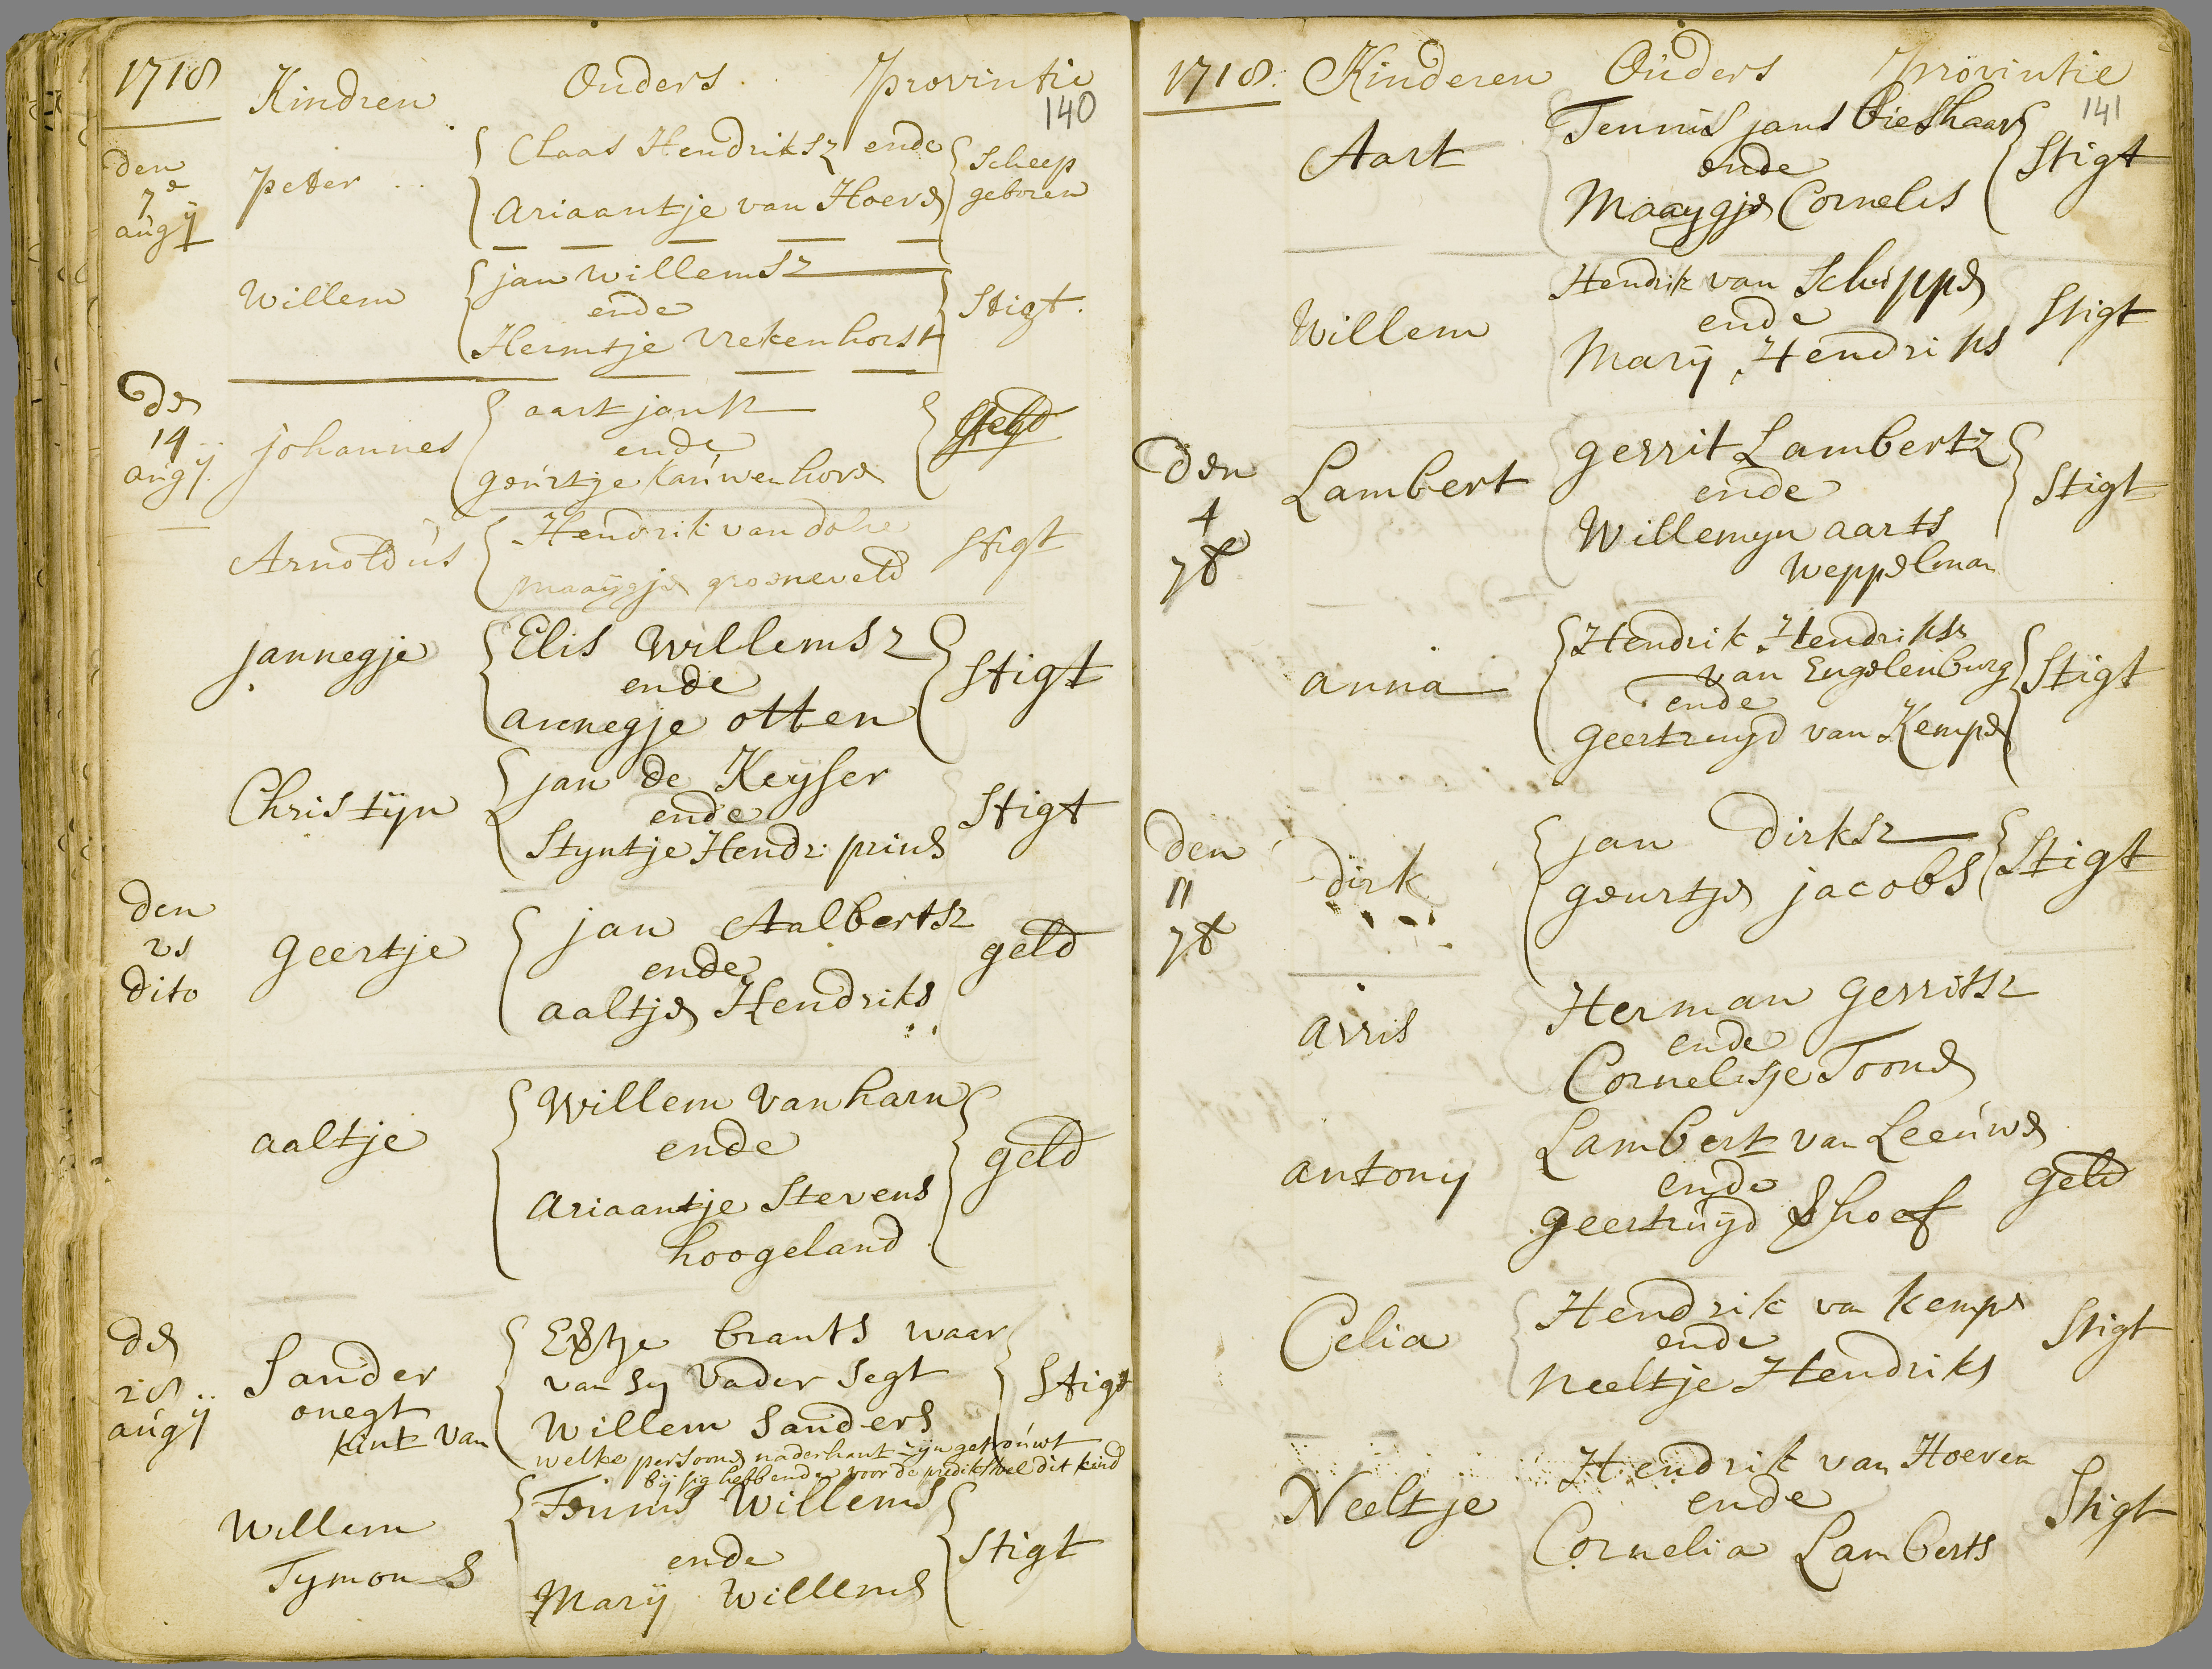 1718 Kindren Ouders Provintie
140
den
7e
augij
Peter Claas Hendriksz ende Scheep
Ariaantje van Hoeve geboren
Willem jan willemsz
ende Stigt
Hermtje Vrekenhorst
De
14
augij
Johannes aart jansz
ende
geurtje Kauwenhove
Arnoldus Hendrik van dolre Stigt
maaÿgje groeneveld
Jannegje Elis Willemsz
ende Stigt
annegje otten
Christijn jan de Keyser
ende Stigt
Styntje Hendr: prins
den
21
dito
geertje jan Aalbertsz
ende geld
aaltje Hendriks
aaltje Willem van harn
ende geld
Ariaantje Stevens
hoogeland
de
28
augij
Sander Brants waar
onegt van sy vader segt Stigt
kint van Willem Sanders
welke persoone naderhant zijn getrouwt
bij sig hebbende voor de predikstoel dit kind
Willem Teunis Willems
Tymons ende Stigt
Marij Willems
1718: Kinderen Ouders Provintie
141
Aart Teunis jans bieshaar
ende Stigt
Maaygje Cornelis
Willem Hendrik van Schuppe
ende Stigt
Marij Hendriks
den
4
7b
Lambert gerrit Lambertz
ende Stigt
Willemyn aarts
Weppelman
anna Hendrik Hendriksz
van Engelenburg Stigt
ende
geertruyd van Kempe
den
11
7b
dirk jan Dirksz
geurtje jacobs Stigt
arris Herman gerritsz
ende
Cornelisje Toone
antonij Lambert van Leeuwe
ende geld
geertruijd Shoef
Celia Hendrik van Kempe
ende Stigt
Neeltje Hendriks
Neeltje Hendrik van Hoeven
ende Stigt
Cornelia Lamberts